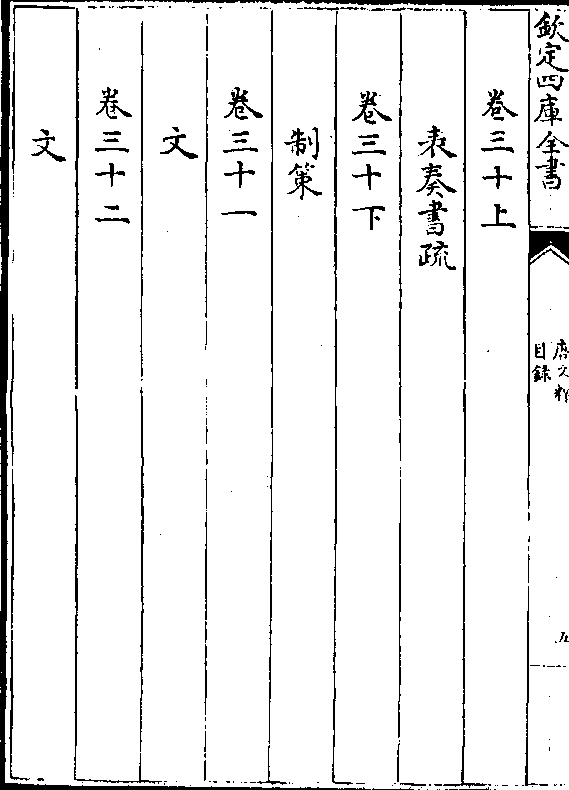 欽定四庫全書
唐文粹
目錄
九
卷三十上
表奏書疏
卷三十下
制策
卷三十一
文
卷三十二
文